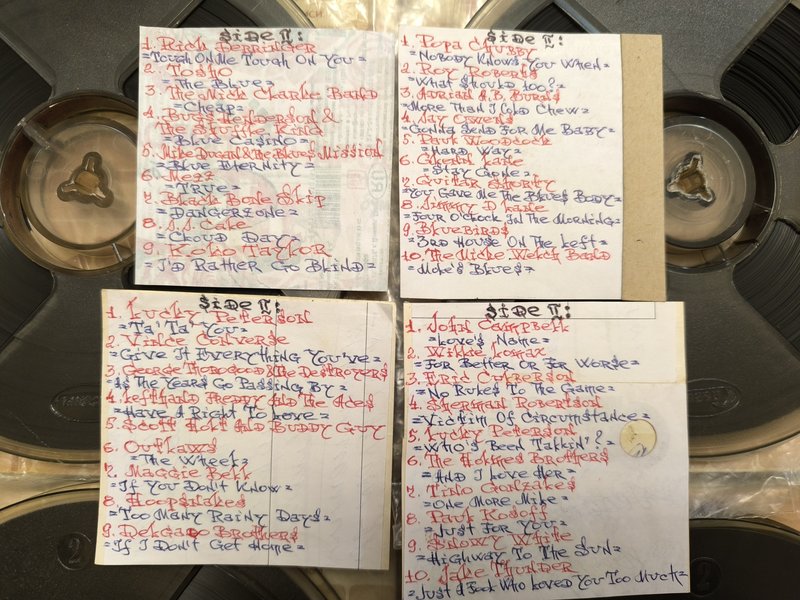 Side II:
1. Rick Derringer
=Tough On Me Tough On You=
2. Tosho
=The Blue=
3. The Mick Clarke Band
=Cheap=
4. Bugs Henderson &
The Shuffle King
=Blue Casino=
5. Mike Dugan & The Blues Mission
=Blue Eternity=
6. Mezz
=True=
7. Black Bone Skip
=Dangerzone=
8. J.J. Cale
=Cloud Day=
9. Koko Taylor
=I'd Rather Go Blind=
Side II:
1. Popa Chubby
=Nobody Knows You When=
2. Roy Roberts
=What Should 100?=
3. Aurian A.B. Burns
=More Than I Cold Chew=
4. Jay Owens
=Gonna Send For Me Baby=
5. Paul Woodcock
=Hard Way=
6. Glenn Kaie
=Stay Gone=
7. Guitar Shorty
=You Gave Me The Blues Body=
8. Jimmy D Lane
=Four O'Clock In The Morning=
9. Bluebirds
=3rd House On The Left=
10. The Mike Welch Band
=Mike's Blues=
Side II:
1. Lucky Peterson
=Ta' Ta' You=
2. Vince Converse
=Give It Everything You've=
3. George Thorogood & The Destroyers
=As The Years Go Passing By=
4. Lefthand Freddy And The Aces
=Have A Right To Love=
5. Scott Holt And Buddy Guy
6. Outlaws
=The Wheel=
7. Maggie Bell
=If You Don't Know=
8. Hoopsnakes
=Too Many Rainy Days=
9. Delgado Brothers
=If I Don't Get Home=
Side II:
1. John Campbell
=Love's Name=
2. Willie Lomax
=For Better Or For Worse=
3. Eric Culberson
=No Rules To The Game=
4. Sherman Robertson
=Victim Of Circumstance=
5. Lucky Peterson
=Who's Been Talkin'?=
6. The Holmes Brothers
=And I Love Her=
7. Tino Gonzales
=One More Mile=
8. Paul Kodoff
=Just For You=
9. Snowy White
=Highway To The Sun=
10. Jake Thunder
=Just A Fool Who Loved You Too Much=
2
2